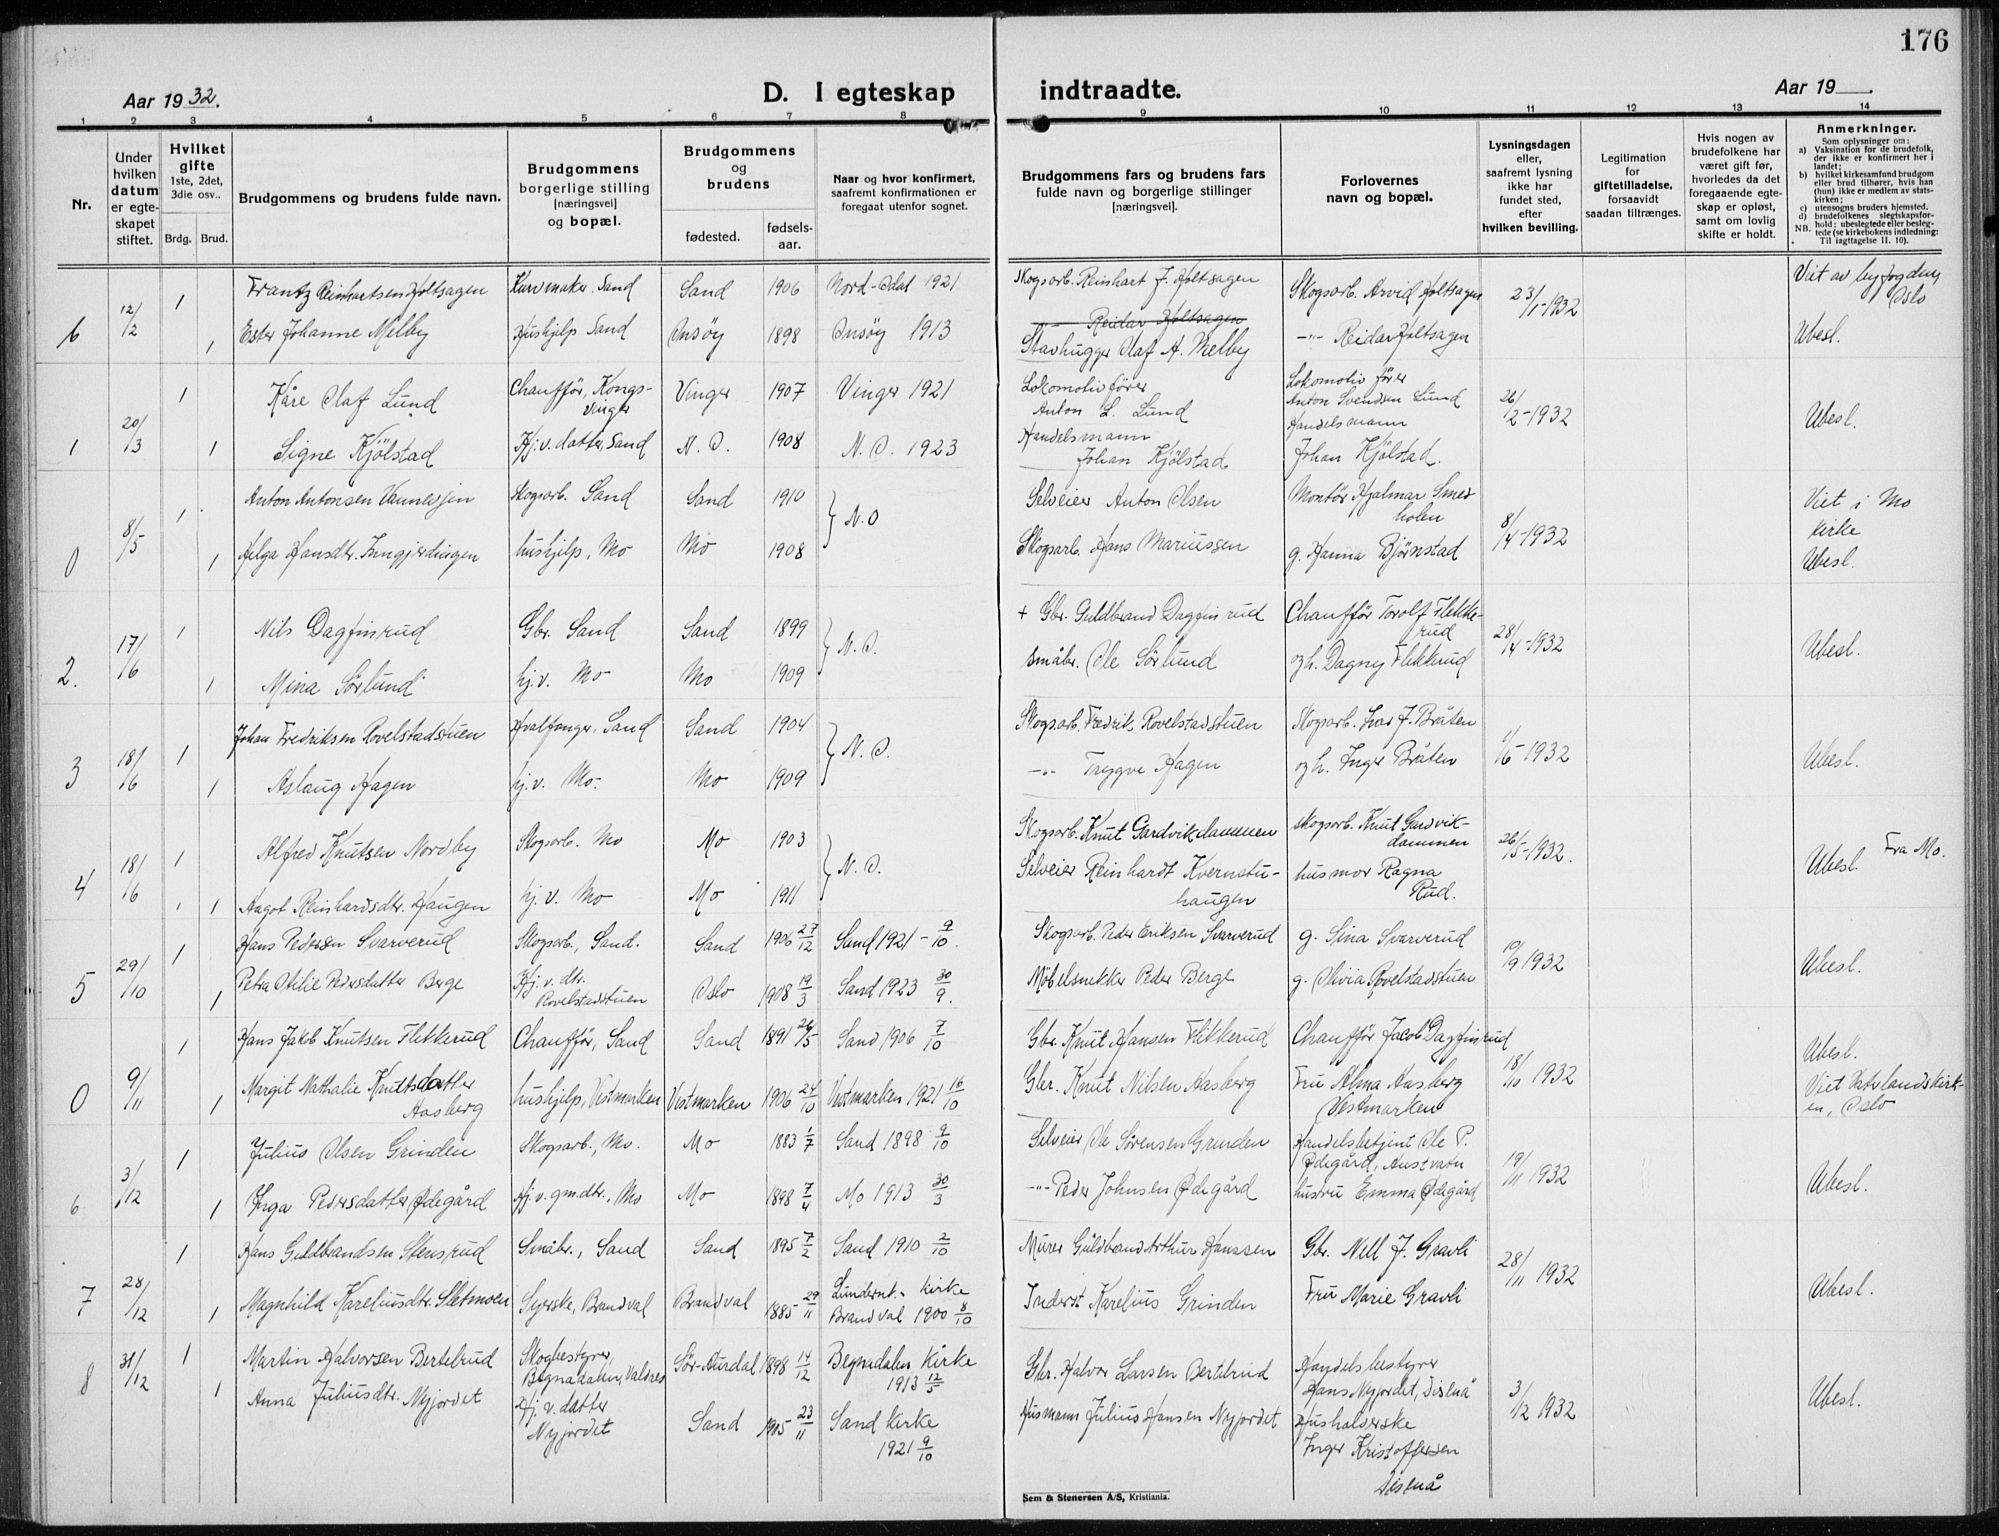 176
Aar 1932.
D. I egteskap indtraadte.
Aar 19
1 2 3 4 5 6 7 8 9 10 11 12 13 14
Nr.
Under hvilken datum er egteskapet stiftet.
Hvilket gifte 1ste, 2det, 3die osv..
Brdg. Brud.
Brudgommens og brudens fulde navn.
Brudgommens borgerlige stilling [næringsvei] og bopæl.
Brudgommens og brudens
fødested. fødselsaar.
Naar og hvor konfirmert, saafremt konfirmationen er foregaat utenfor sognet.
Brudgommens fars og brudens fars fulde navn og borgerlige stillinger [næringsvei].
Forlovernes navn og bopæl.
Lysningsdagen eller, saafremt lysning ikke har fundet sted, efter hvilken bevilling.
Legitimation for giftetilladelse, forsaavidt saadan tiltrænges.
Hvis nogen av brudefolkene har været gift før, hvorledes da det foregaaende egteskap er opløst, samt om lovlig skifte er holdt.
Anmerkninger.
Som oplysninger om:
a) Vaksination for de brudefolk, der ikke er konfirmert her i landet;
b) hvilket kirkesamfund brudgom eller brud tilhører, hvis han (hun) ikke er medlem av statskirken;
c) utensogns bruders hjemsted.
d) brudefolkenes slegtskapsforhold; ubeslegtede eller beslegtede (se kirkebokens indledning:
NB. Til iagttagelse II. 10).
6 12/2 1 Frantz Reinhartsen Holtsagen Kurvmaker. Sand Sand 1906 Nord-Odal 1921 Skogsarb. Reinhart J. Holtsagen Skogsarb. Arvid Holtsagen 23/1-1932 Viet av byfogden, Oslo
Reidar Holtsagen
1 Ester Johanne Melby Hushjelp Sand Onsøy 1898 Onsøy 1913 Stavhugger Olaf A. Melby -"- Reidar Holtsagen Ubesl.
1 20/3 1 Kåre Olaf Lund Chauffør, Kongsvinger Vinger 1907 Vinger 1921 Lokomotivfører Anton L. Lund Lokomotiv fører Anton Svendsen Lund 26/2-1932 Ubesl.
1 Signe Kjølstad Hj.v. datter, Sand N. O. 1908 N. O. 1923 Handelsmann Johan Kjølstad Handelsmann Johan Kjølstad.
0 8/5 1 Anton Antonsen Skogsarb. Sand Sand 1910 } N.O Selveier Anton Olsen Montør Hjalmar Smedholen 8/4-1932 Viet i Mo kirke
1 Helga Hansdtr. Inngjerdingen hushjelp, Mo Mo 1908 Skogsarb. Hans Mariussen g. Hanna Bjørnstad Ubesl.
2. 17/6 1 Nils Dagfinrud Gbr. Sand Sand 1899 } N. O. + Gbr. Guldbrand Dagfinrud Chauffør Torolf Flikkerud 28/4-1932 Ubesl.
1 Mina Sørlund hj.v. Mo Mo 1909 småbr. Ole Sørlund og h. Dagny Flikkerud
3 18/6 1 Johan Fredriksen Rovelstadstuen Hvalfanger, Sand Sand 1904 } N. O. Skogsarb. Fredrik Rovelstadstuen Skogsarb. Ivar J. Bråten 1/6-1932 Ubesl.
1 Aslaug Hagen hj.v. Mo. Mo 1909 -"- Trygve Hagen og h. Inger Bråten
4 18/6 1 Alfred Knutsen Nordby Skogsarb. Mo Mo 1903 } N. O. Skogsarb. Knut Gardvikdammen skogsarb. Knut Gardvikdammen 26/5-1932. Ubesl. Fra Mo.
1 Aagot Reinhardsdtr. Haugen hj.v. Mo Mo 1911 Selveier Reinhardt Kvernstuhaugen husmor Ragna Rud.
5 29/10 1 Hans Pedersen Svarverud Skogsarb., Sand. Sand 1906 27/12 Sand 1921 - 9/10. Skogsarb. Peder Eriksen Svarverud g. Sina Svarverud 10/9 1932 Ubesl.
1 Petra Otilie Pedersdatter Berge Hj.v. dtr. Rovelstadstuen Oslo 1908 19/3 Sand 1923 30/9. Møbelsnekker Peder Berge g. Olivia Rovelstadstuen
0 9/11 1 Hans Jakob Knutsen Flikkerud Chauffør, Sand Sand 1891 26/5 Sand 1906 7/10 Gbr. Knut Hansen Flikkerud Chauffør Jacob Dagfinrud 18/10 1932 Ubesl.
1 Margit Nathalie Knutsdatter Aasberg hushjelp, Vestmarken Vestmarken 1906 24/10 Vestmarken 1921 16/10 Gbr. Knut Nilsen Aasberg Fru Alma Aasberg Vestmarken Viet Vaterlandskirken, Oslo
6 3/12 1 Julius Olsen Grinden Skogsarb., Mo. Mo 1883 1/7 Sand 1898 9/10 Selveier Ole Sørensen Grinden Handelsbetjent Ole P. Ødegård, Austvatn 19/11 1932 Ubesl.
1 Inga Pedersdatter Ødegård Hj.v. gmdtr., Mo Mo 1898 7/4 Mo 1913 30/3 -"- Peder Johnsen Ødegård hustru Emma Ødegård
7 28/12 1 Hans Guldbrandsen Stensrud Småbr., Sand Sand 1895 7/2 Sand 1910 2/10 Murer Guldbrand Arthur Hanssen Gbr. Nell J. Gravli 28/11 1932 Ubesl.
1 Magnhild Kareliusdtr. Sletmoen Syerske, Brandval Brandval 1885 29/11 Kirke Brandval 1900 8/10 Inderst Karelius Grinden Fru Marie Gravli
8 31/12 1 Martin Halvorsen Bertelrud Skogbestyrer, Begnadalen, Valdres Sør-Aurdal 1898 14/12 Begnadalen Kirke 1913 12/5 Gbr. Halvor Larsen Bertelrud Handelsbestyrer Hans Nyjordet, Disenå 3/12 1932 Ubesl.
1 Anna Juliusdtr. Nyjordet Hj.v. datter Nyjordet Sand 1905 23/11 Sand Kirke 1921 9/10 Husmann Julius Hansen Nyjordet Husholderske Inger Kristoffersen Disenå
Sem & Stenersen A/S, Kristiania.